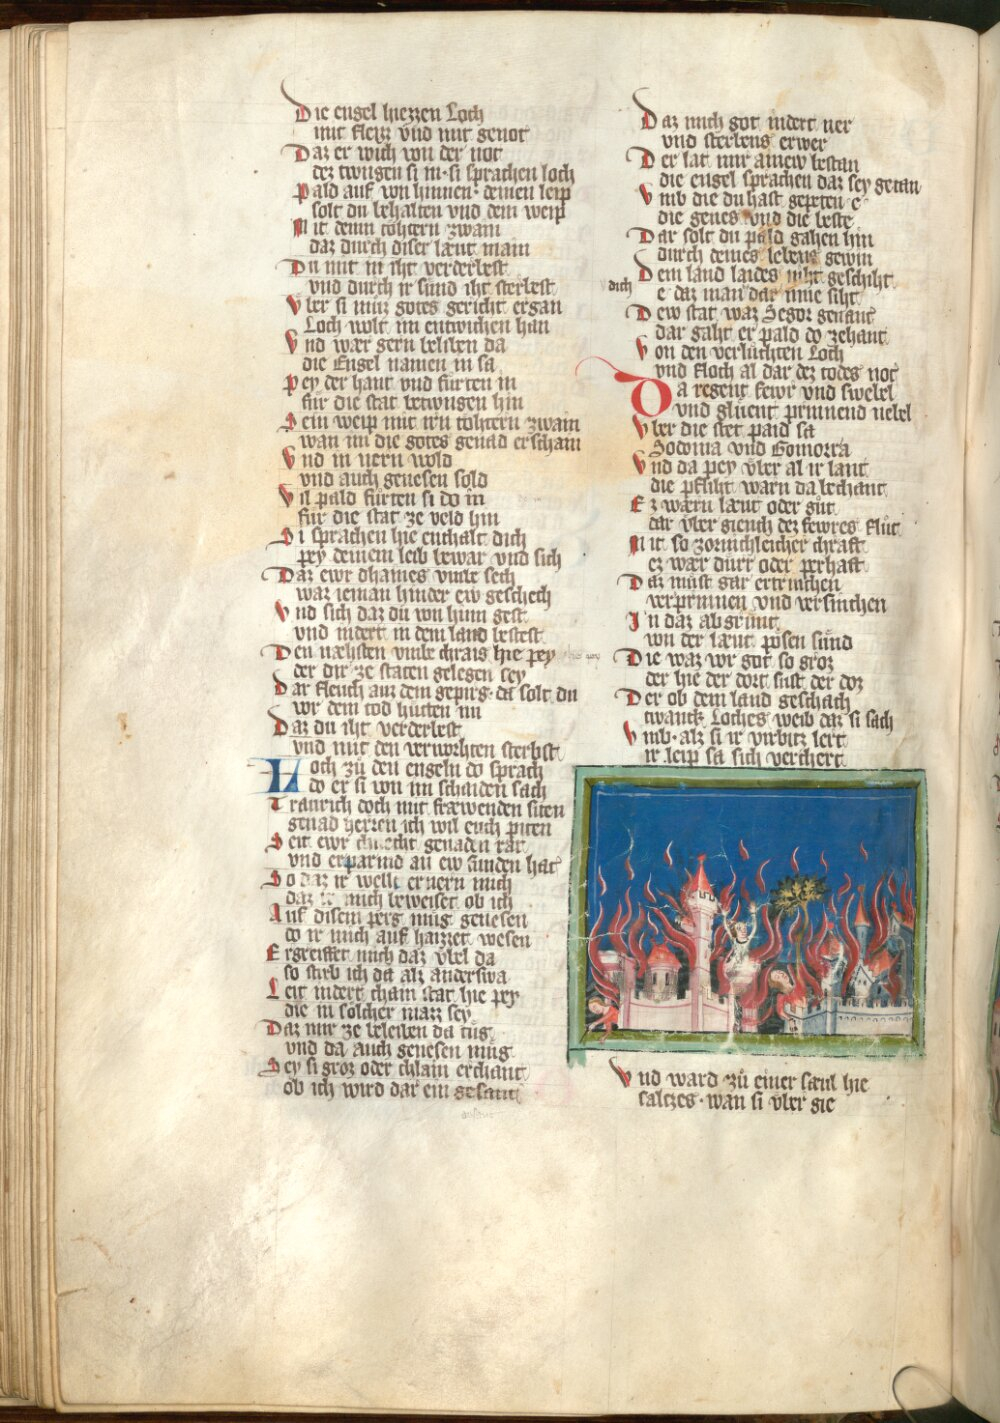 Die engel hiezzen Loch
mit fleizz vnd mit genot
Daz er wich von der not
dez twngen si in · si sprachen loch
Pald auf von hinnen · deinen leip
solt du behalten vnd dein weip
Mit deinn töhtern zwain
daz durch diser læut main
Du mit in iht verderbest
vnd durch ir sünd iht sterbest
Vber si muz gotes gericht ergan
Loch wolt im entwichen han
Vnd wær gern beliben da
die Engel namen in sa
Pey der hant vnd fürten in
für die stat betwngen hin
Sein weip mit irn töhtern zwain
wan im die gotes genad erschain
Vnd in nern wold
vnd auch genesen sold
Vil pald fürten si do in
für die stat ze veld hin
Si sprachen hie enthalt dich
pey deinem leib bewar vnd sich
Daz ewr dhaines vmbe sech
waz ieman hinder ew geschech
Vnd sich daz du von hinn gest
vnd indert in dem land bestest
Den næhsten vmbe chrais hie pey
der dir ze staten gelegen sey
Dar fleuch auz dem gepirg · da solt du
vor dem tod hütten nu
Daz du iht verderbest
vnd mit den verworhten sterbst
Loch zü den engeln do sprach
do er si von im schaiden sach
Traurich doch mit fræwenden siten
genad herren ich wil euch piten
Seit ewr chnecht genaden rat
vnd erparmd an ew funden hat
So daz ir wellt ernern mich
daz ir mich beweiset ob ich
Auf disem perg müg genesen
do ir mich auf haizzet wesen
Ergreiffet mich daz vbel da
so stirb ich da alz anderswa
Leit indert chain stat hie pey
die in sölcher mazz sey
Daz mir ze beleiben da tüg
vnd da auch genesen müg
Sey si groz oder chlain erchant
ob ich wird dar ein gesant
Daz mich got indert ner
vnd sterbens erwer
Der lat mir ainew bestan
die engel sprachen daz sey getan
Vmb die du hast gepeten e
die genes vnd die beste
Dar solt du pald gahen hin
durch deines lebens gewin
Dem land laides niht geschiht
dich
e daz man dar inne siht
Dew stat waz Segor genant
dar gaht er pald do zehant
Von den verflüchten Loch
vnd floch al dar dez todes not
Da regent fewr vnd swebel
vnd glüent prinnend nebel
Vber die stet paid sa
Sodoma vnd Gomorra
Vnd da pey vber al ir lant
die pfliht warn da bechant
Ez wærn læut oder güt
dar vber giench dez fewres flüt
Mit so zornichleicher chraft
ez wær dürr oder perhaft
Daz müst gar ertrinchen
verprinnen vnd versinchen
In daz abgrunt
von der læut pösen sünd
Die waz vor got so groz
der hie der dort sust der doz
Der ob dem land geschach
twanck Loches weib daz si sach
Vmb · alz si ir virbitz lert
ir leip sa sich verchert
Vnd ward zü einer sæul hie
saltzes · wan si vber gie